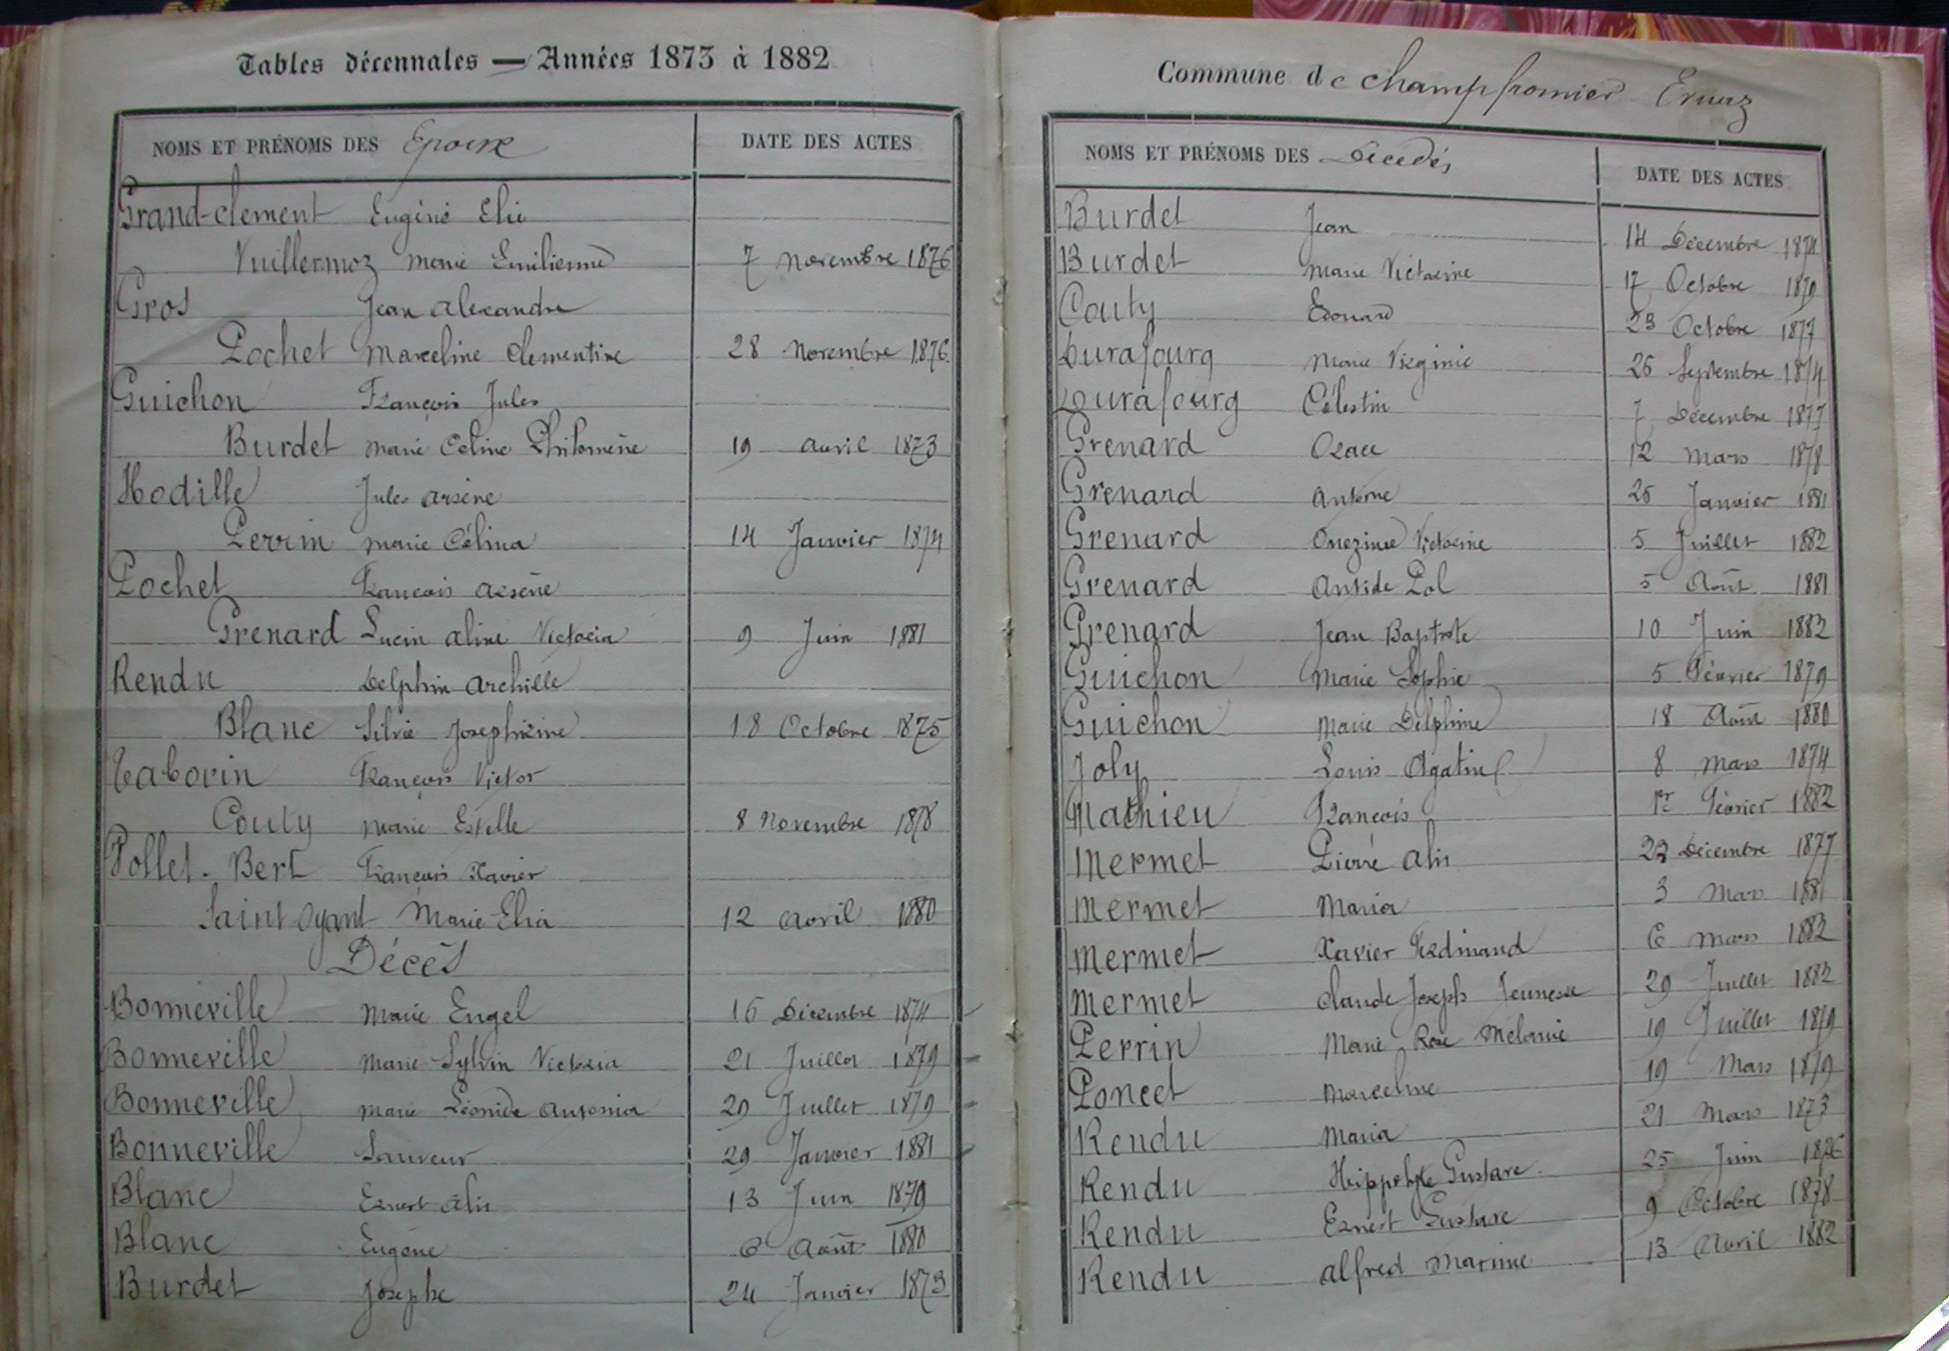 Tables décennales — Années 1873 à 1882
NOMS ET PRÉNOMS DES Epoux DATE DES ACTES
Grand-clement Eugéne Elie
Vuillermoz Marie Emilienne 7 Novembre 1876
Gros Jean Alexandre
Pochet Marceline Clementine 28 Novembre 1876
Guichon François Jules
Burdet Marie Celine Philomène 19 Avril 1873
Hodille Jules Arsène
Perrin Marie Célina 14 Janvier 1874
Pochet François Arsène
Grenard Lucin Aline Victoria 9 Juin 1881
Rendu Delphin Archille
Blanc Silvie Josephine 18 Octobre 1875
Taborin François Victor
Couty Marie Estelle 8 Novembre 1878
Pollet-Bert François Xavier
Saint Oyant Marie Elia 12 Avril 1880
Décès
Bonneville Marie Engel 16 Décembre 1874
Bonneville Marie-Sylvin Victoria 21 Juillet 1879
Bonneville Marie Léonide Antonia 29 Juillet 1879
Bonneville Sauveur 29 Janvier 1881
Blanc Ernest Alis 13 Juin 1879
Blanc Eugène 6 Août 1880
Burdet Josephe 24 Janvier 1873
Commune de Champfromier Evuaz
NOMS ET PRÉNOMS DES Décédés DATE DES ACTES
Burdet Jean 14 Décembre 1874
Burdet Marie Victorine 17 Octobre 1879
Couty Edouard 23 Octobre 1877
Durafourg Marie Virginie 26 Septembre 1874
Durafourg Célestin 7 Décembre 1877
Grenard 12 Mars 1878
Grenard Antoine 25 Janvier 1881
Grenard Onezime Victorine 5 Juillet 1882
Grenard Antide Pol 5 Août 1881
Grenard Jean Baptiste 10 Juin 1882
Guichon Marie Sophie 5 Février 1879
Guichon Marie Delphine 18 Août 1880
Joly Louis Agatin 8 Mars 1874
Mathieu François 1er Février 1882
Mermet Pierre Alis 23 Décembre 1877
Mermet Maria 3 Mars 1881
Mermet Xavier Ferdinand 6 Mars 1882
Mermet Claude Joseph Jeunesse 29 Juillet 1882
Perrin Marie Rose Mélanie 19 Juillet 1879
Poncet Marceline 19 Mars 1879
Rendu Maria 21 Mars 1873
Rendu Hippolyte Gustave 25 Juin 1876
Rendu Ernest Gustave 9 Octobre 1878
Rendu Alfred Marine 13 Avril 1882